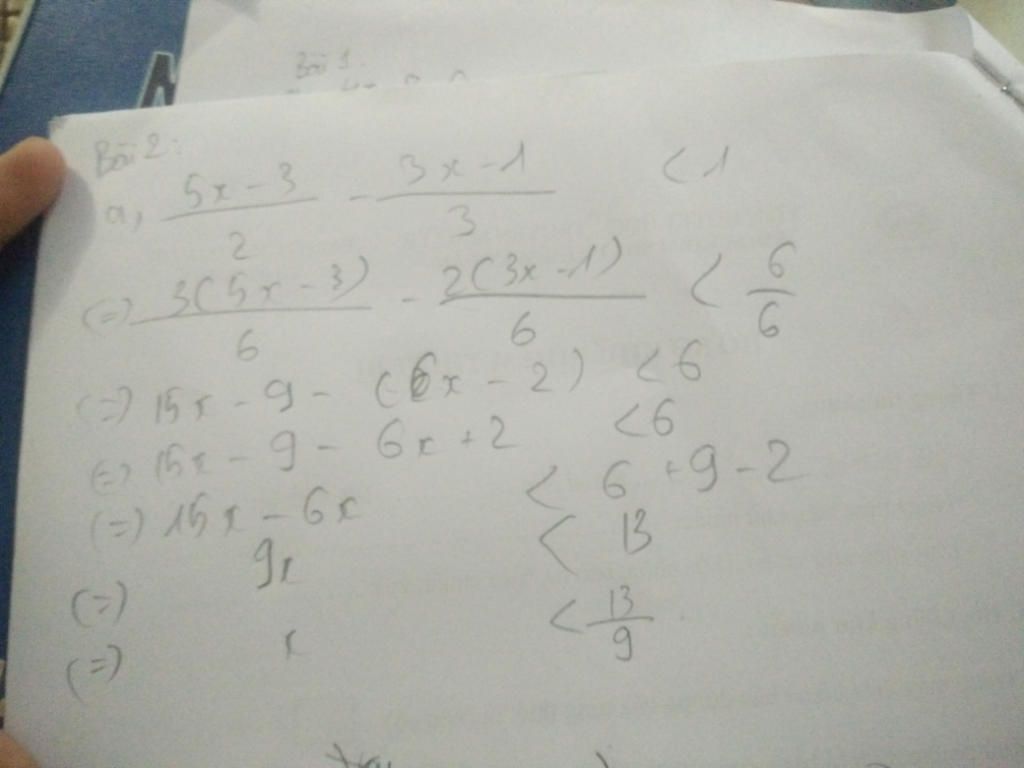 Bài 1:
Bài 2:
a, \frac{5x-3}{2} - \frac{3x-1}{3} < 1
(=) \frac{3(5x-3)}{6} - \frac{2(3x-1)}{6} < \frac{6}{6}
(=) 15x - 9 - (6x - 2) < 6
(=) 15x - 9 - 6x + 2 < 6
(=) 15x - 6x < 6 + 9 - 2
(=) 9x < 13
(=) x < \frac{13}{9}